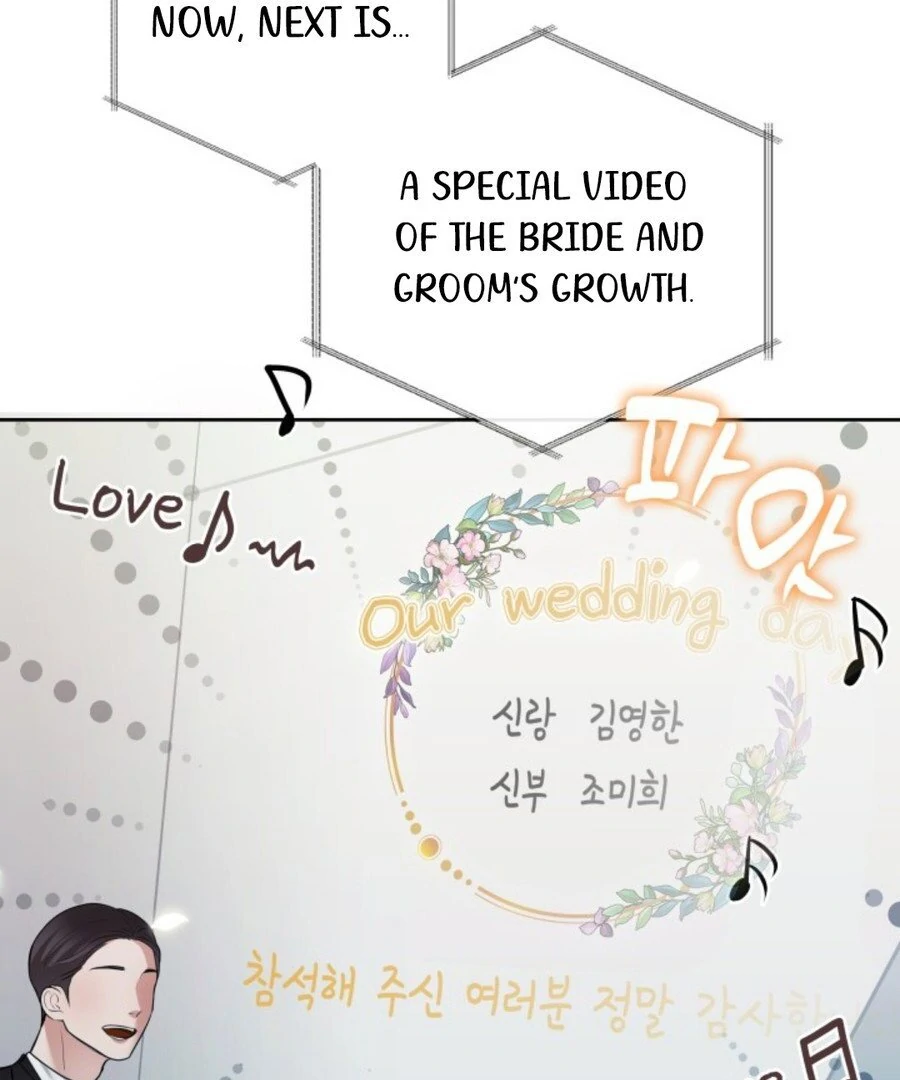 NOW, NEXT IS...
A SPECIAL VIDEO
OF THE BRIDE AND
GROOM'S GROWTH.
파앗
Love
Our wedding day
신랑 김영한
신부 조미희
참석해 주신 여러분 정말 감사하